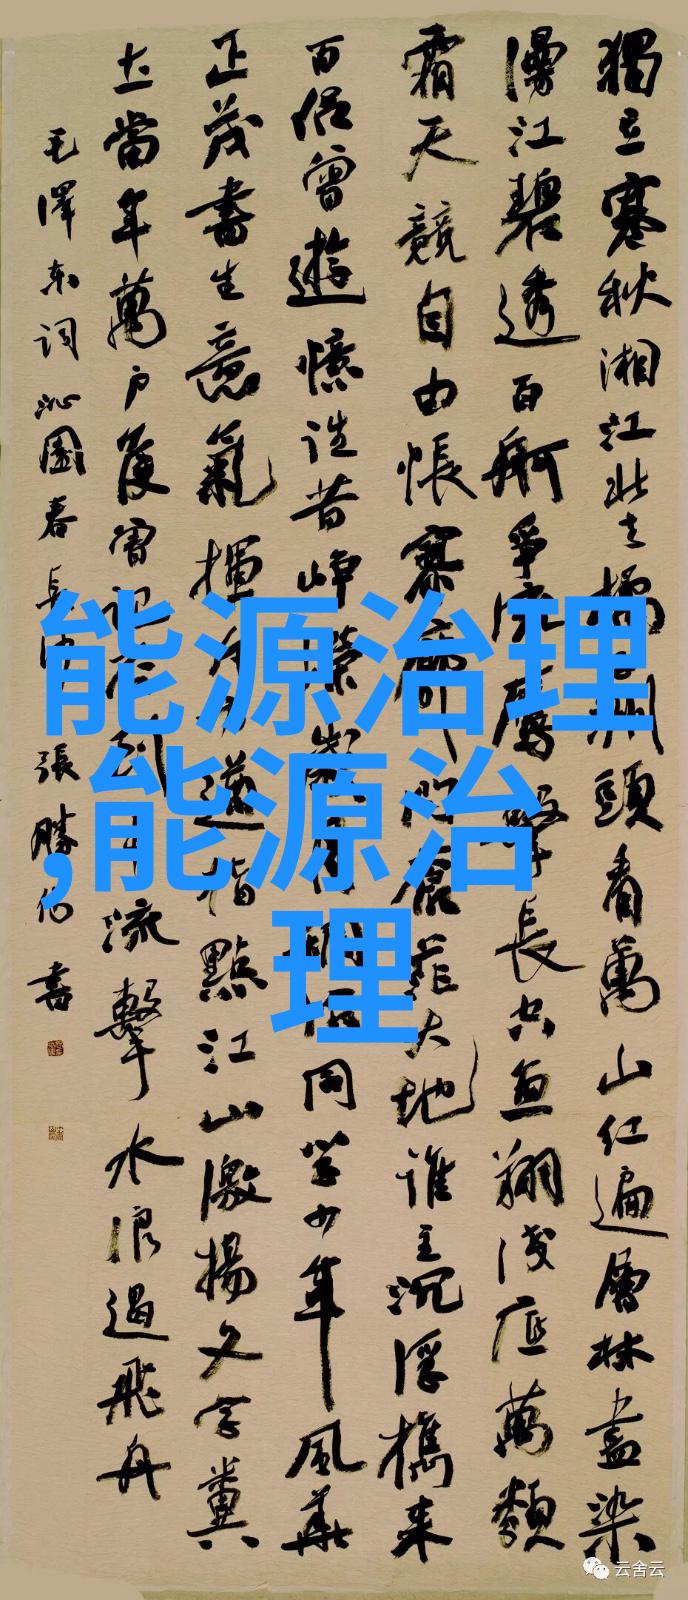 獨立寒秋湘江北去橘子洲頭看萬山紅遍層林盡染
漫江碧透百舸爭流鷹擊長空魚翔淺底萬類
霜天競自由悵寥廓問蒼茫大地誰主沉浮攜來
百侶曾遊憶往昔崢嶸歲月稠恰同學少年風華
正茂書生意氣揮斥方遒指點江山激揚文字糞
土當年萬戶侯曾記否到中流擊水浪遏飛舟
毛澤东詞沁園春長沙 張勝 書
能源治理
,能源治
理
云舍云